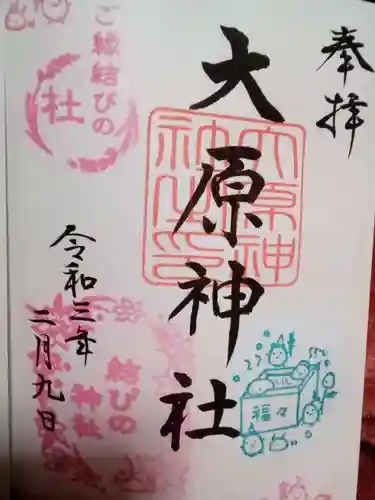 奉拝
大原神社
大原神
神社印
令和三年
二月九日
ご縁結びの
社
結びの
神社
福々